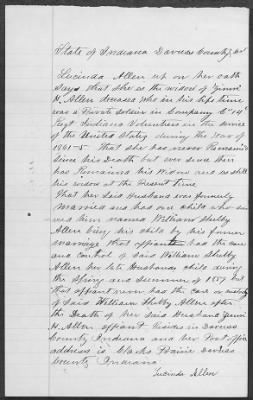 State of Indiana Daviess County, ss
Lucinda Allen up on her oath
says that she is the widow of
H. Allen deceased who in his life time
was a Private soldier in Company "C" 14th
Regt Indiana Volunteers in the service
of the United States during the War of
1861-5 That she has never Remarried
since his Death but ever since then
has Remained his Widow and is still
his widow at the Present time
That her said Husband was formerly
Married and had one child who
him named William Shelby
Allen being his child by his former
marriage that affiant had the care
and control of said William Shelby
Allen her late Husbands child during
the Spring and Summer of 1857 but
that affiant never had the care or custody
of said William Shelby Allen after
the Death of her said Husband
H. Allen, affiant resides in Daviess
County Indiana and her Post office
address is Clarks Prairie Daviess
County Indiana
Lucinda Allen